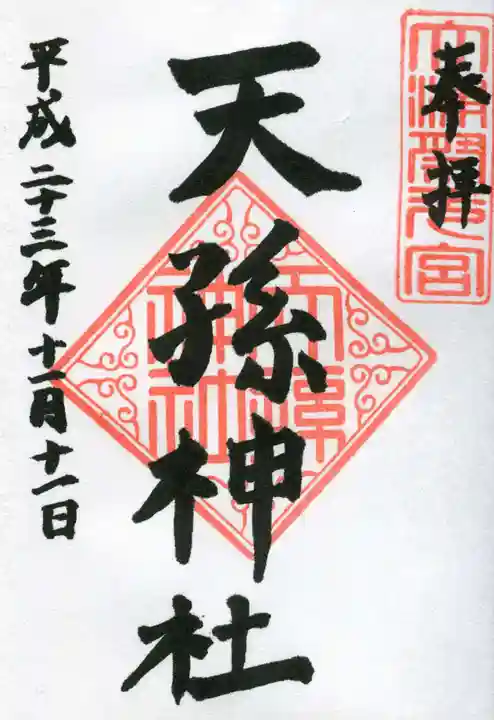 奉拝
天孫神社
平成二十三年十一月十一日
天孫
神社